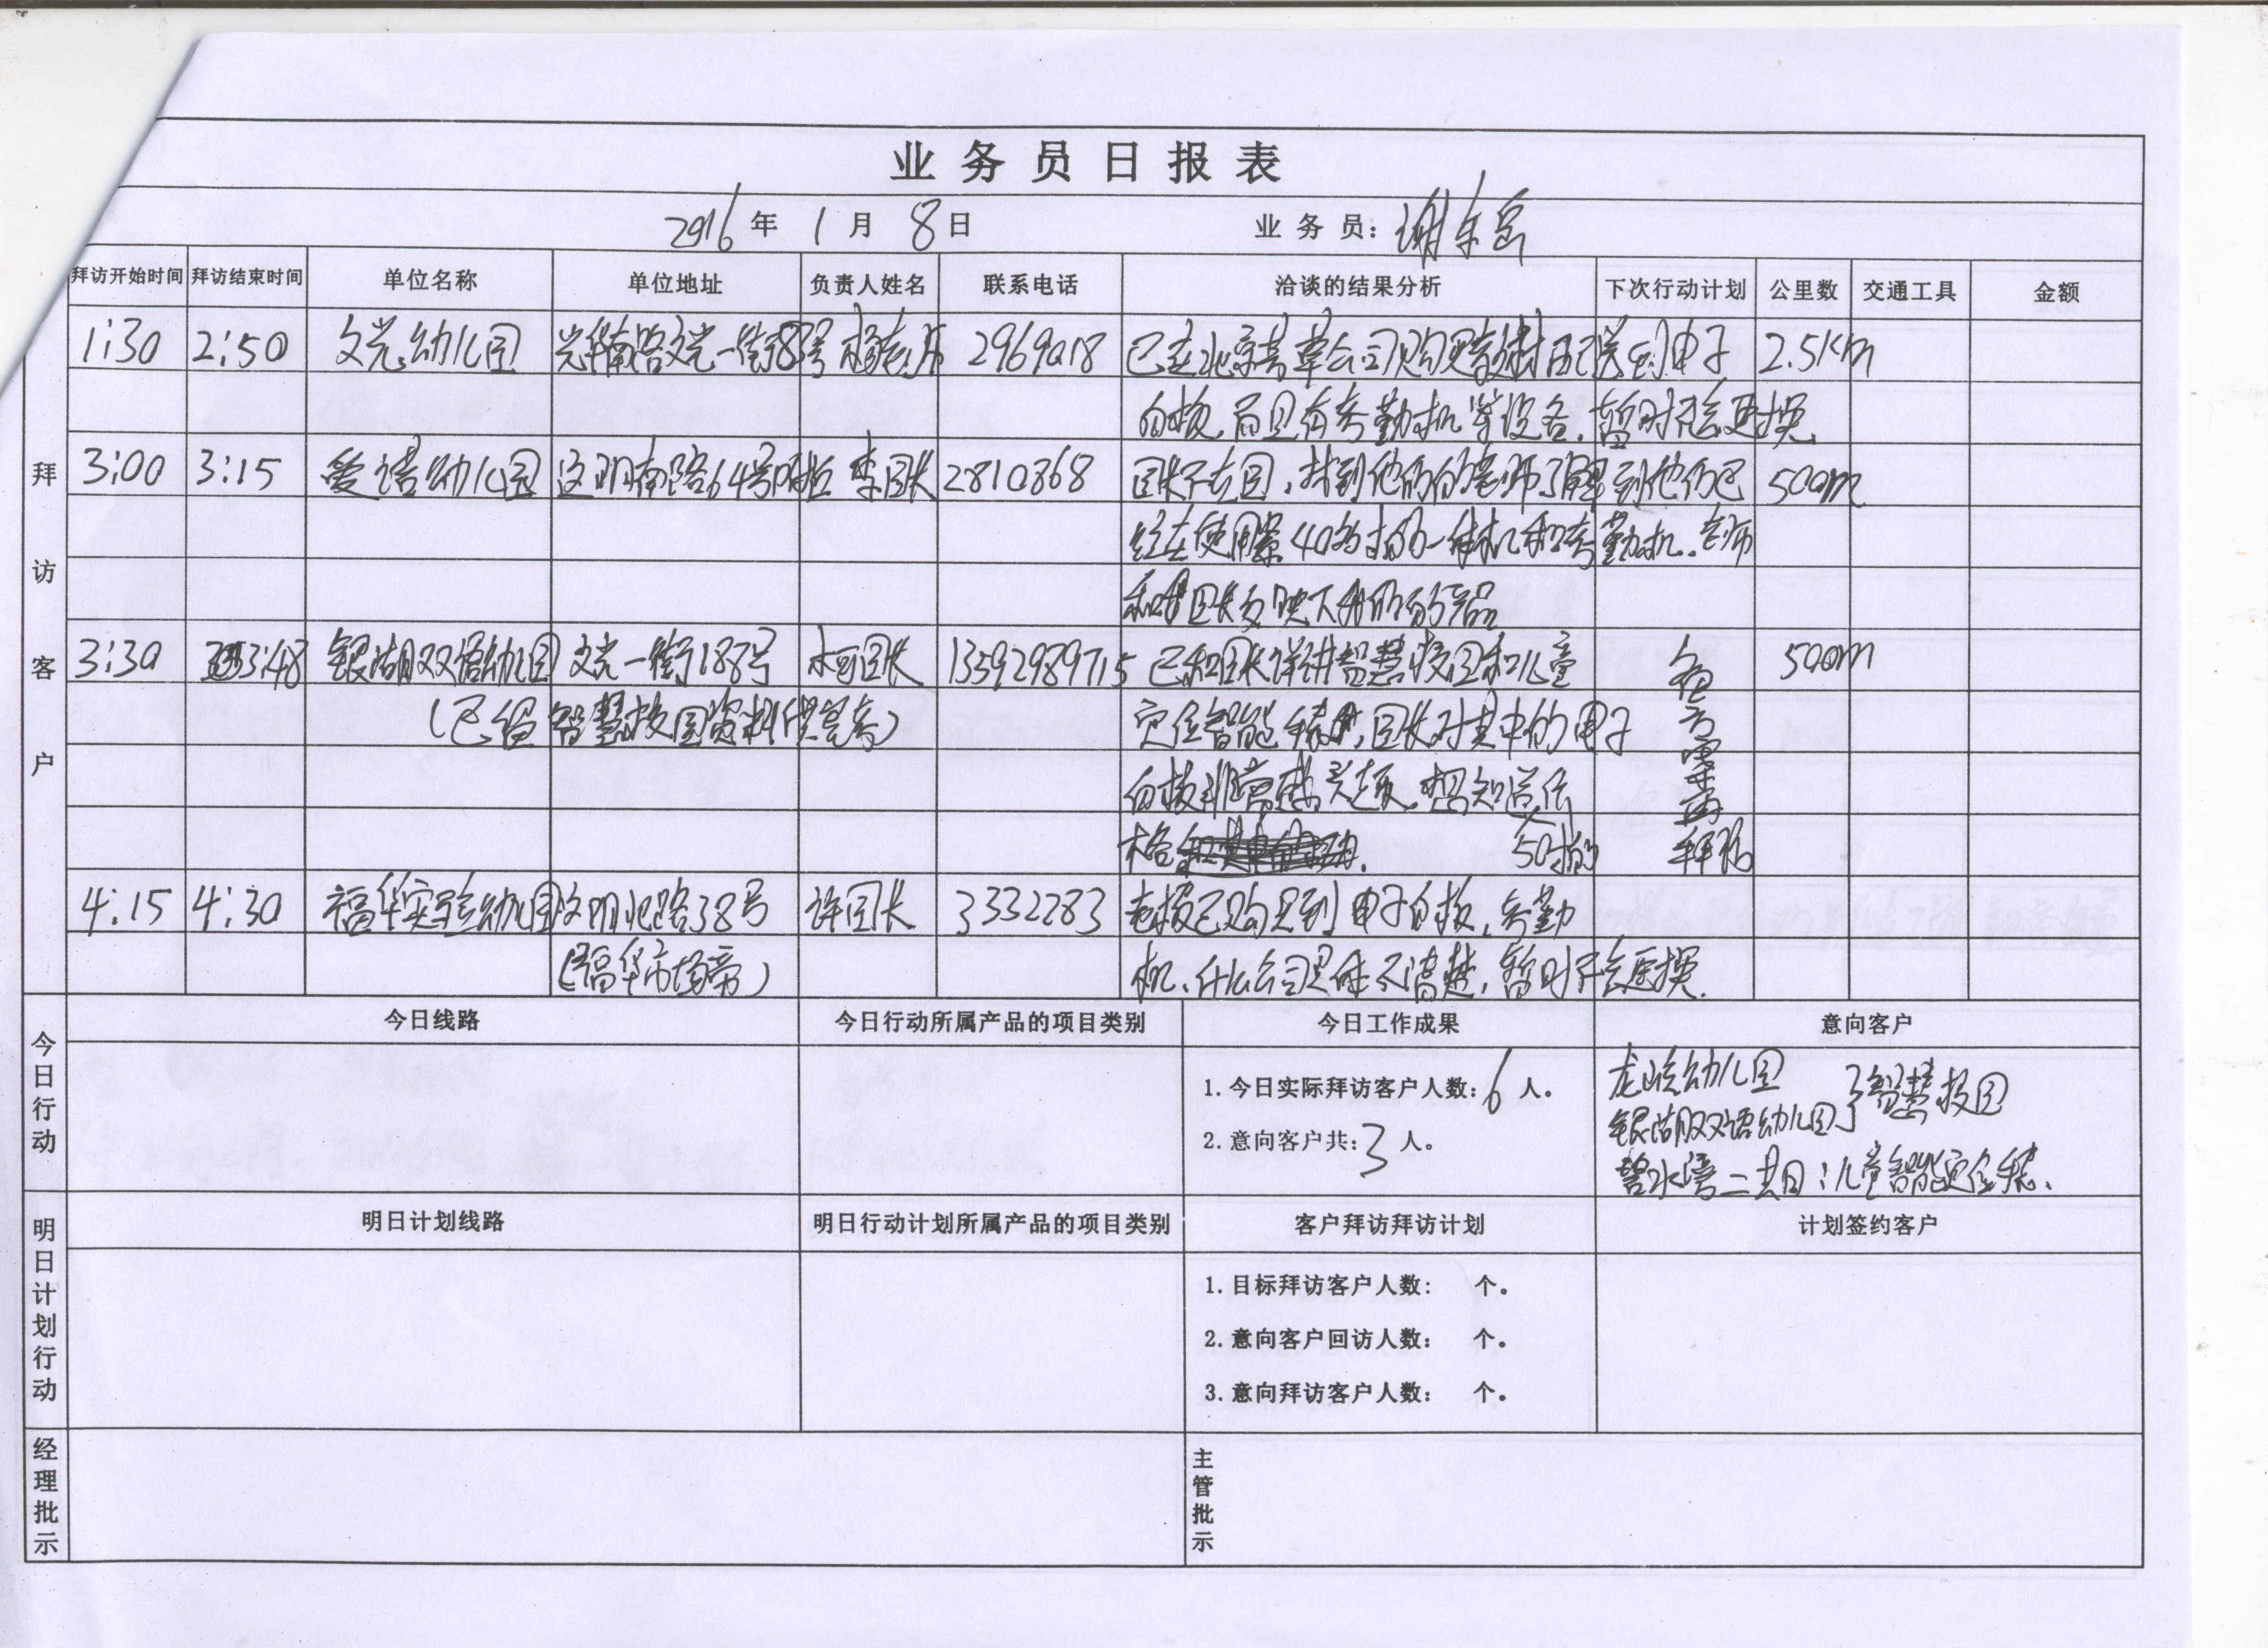 业务员日报表
2016年 1月 8日 业务员:谢
拜访开始时间 拜访结束时间 单位名称 单位地址 负责人姓名 联系电话 洽谈的结果分析 下次行动计划 公里数 交通工具 金额
拜访客户
1:30 2:50 文光幼儿园 光华南路文光一街83号 杨老师 2969018 已在北京 公司购买教材 送的电子 2.5Km
白板,而且有考勤机等设备,暂时不会更换
3:00 3:15 爱诺幼儿园 文明南路64号附近 李园长 2810868 园长不在园,找到他们的老师了解到他们已 500m
经在使用 40多 的一体机和考勤机.老师
和园长反映下我们的产品
3:30 3:48 银湖双语幼儿园 文光一街188号 园长 13592989715 已和园长详讲智慧校园和儿童 500m
(已留智慧校园资料供参考) 定位智能手表,园长对其中的电子
白板非常感兴趣.想知道价
格 50寸的
看方案再拜访
4:15 4:30 福华实验幼儿园 文明北路38号 许园长 3332283 老板已购买到电子白板,考勤
(福华市场旁) 机,什么公司具体不清楚,暂时不会更换.
今日行动
今日线路 今日行动所属产品的项目类别 今日工作成果 意向客户
1.今日实际拜访客户人数:6 人。
2.意向客户共:3 人。
龙 幼儿园
银湖双语幼儿园 } 智慧校园
碧水湾二 :儿童智能定位手表.
明日计划行动
明日计划线路 明日行动计划所属产品的项目类别 客户拜访拜访计划 计划签约客户
1.目标拜访客户人数: 个。
2.意向客户回访人数: 个。
3.意向拜访客户人数: 个。
经理批示 主管批示